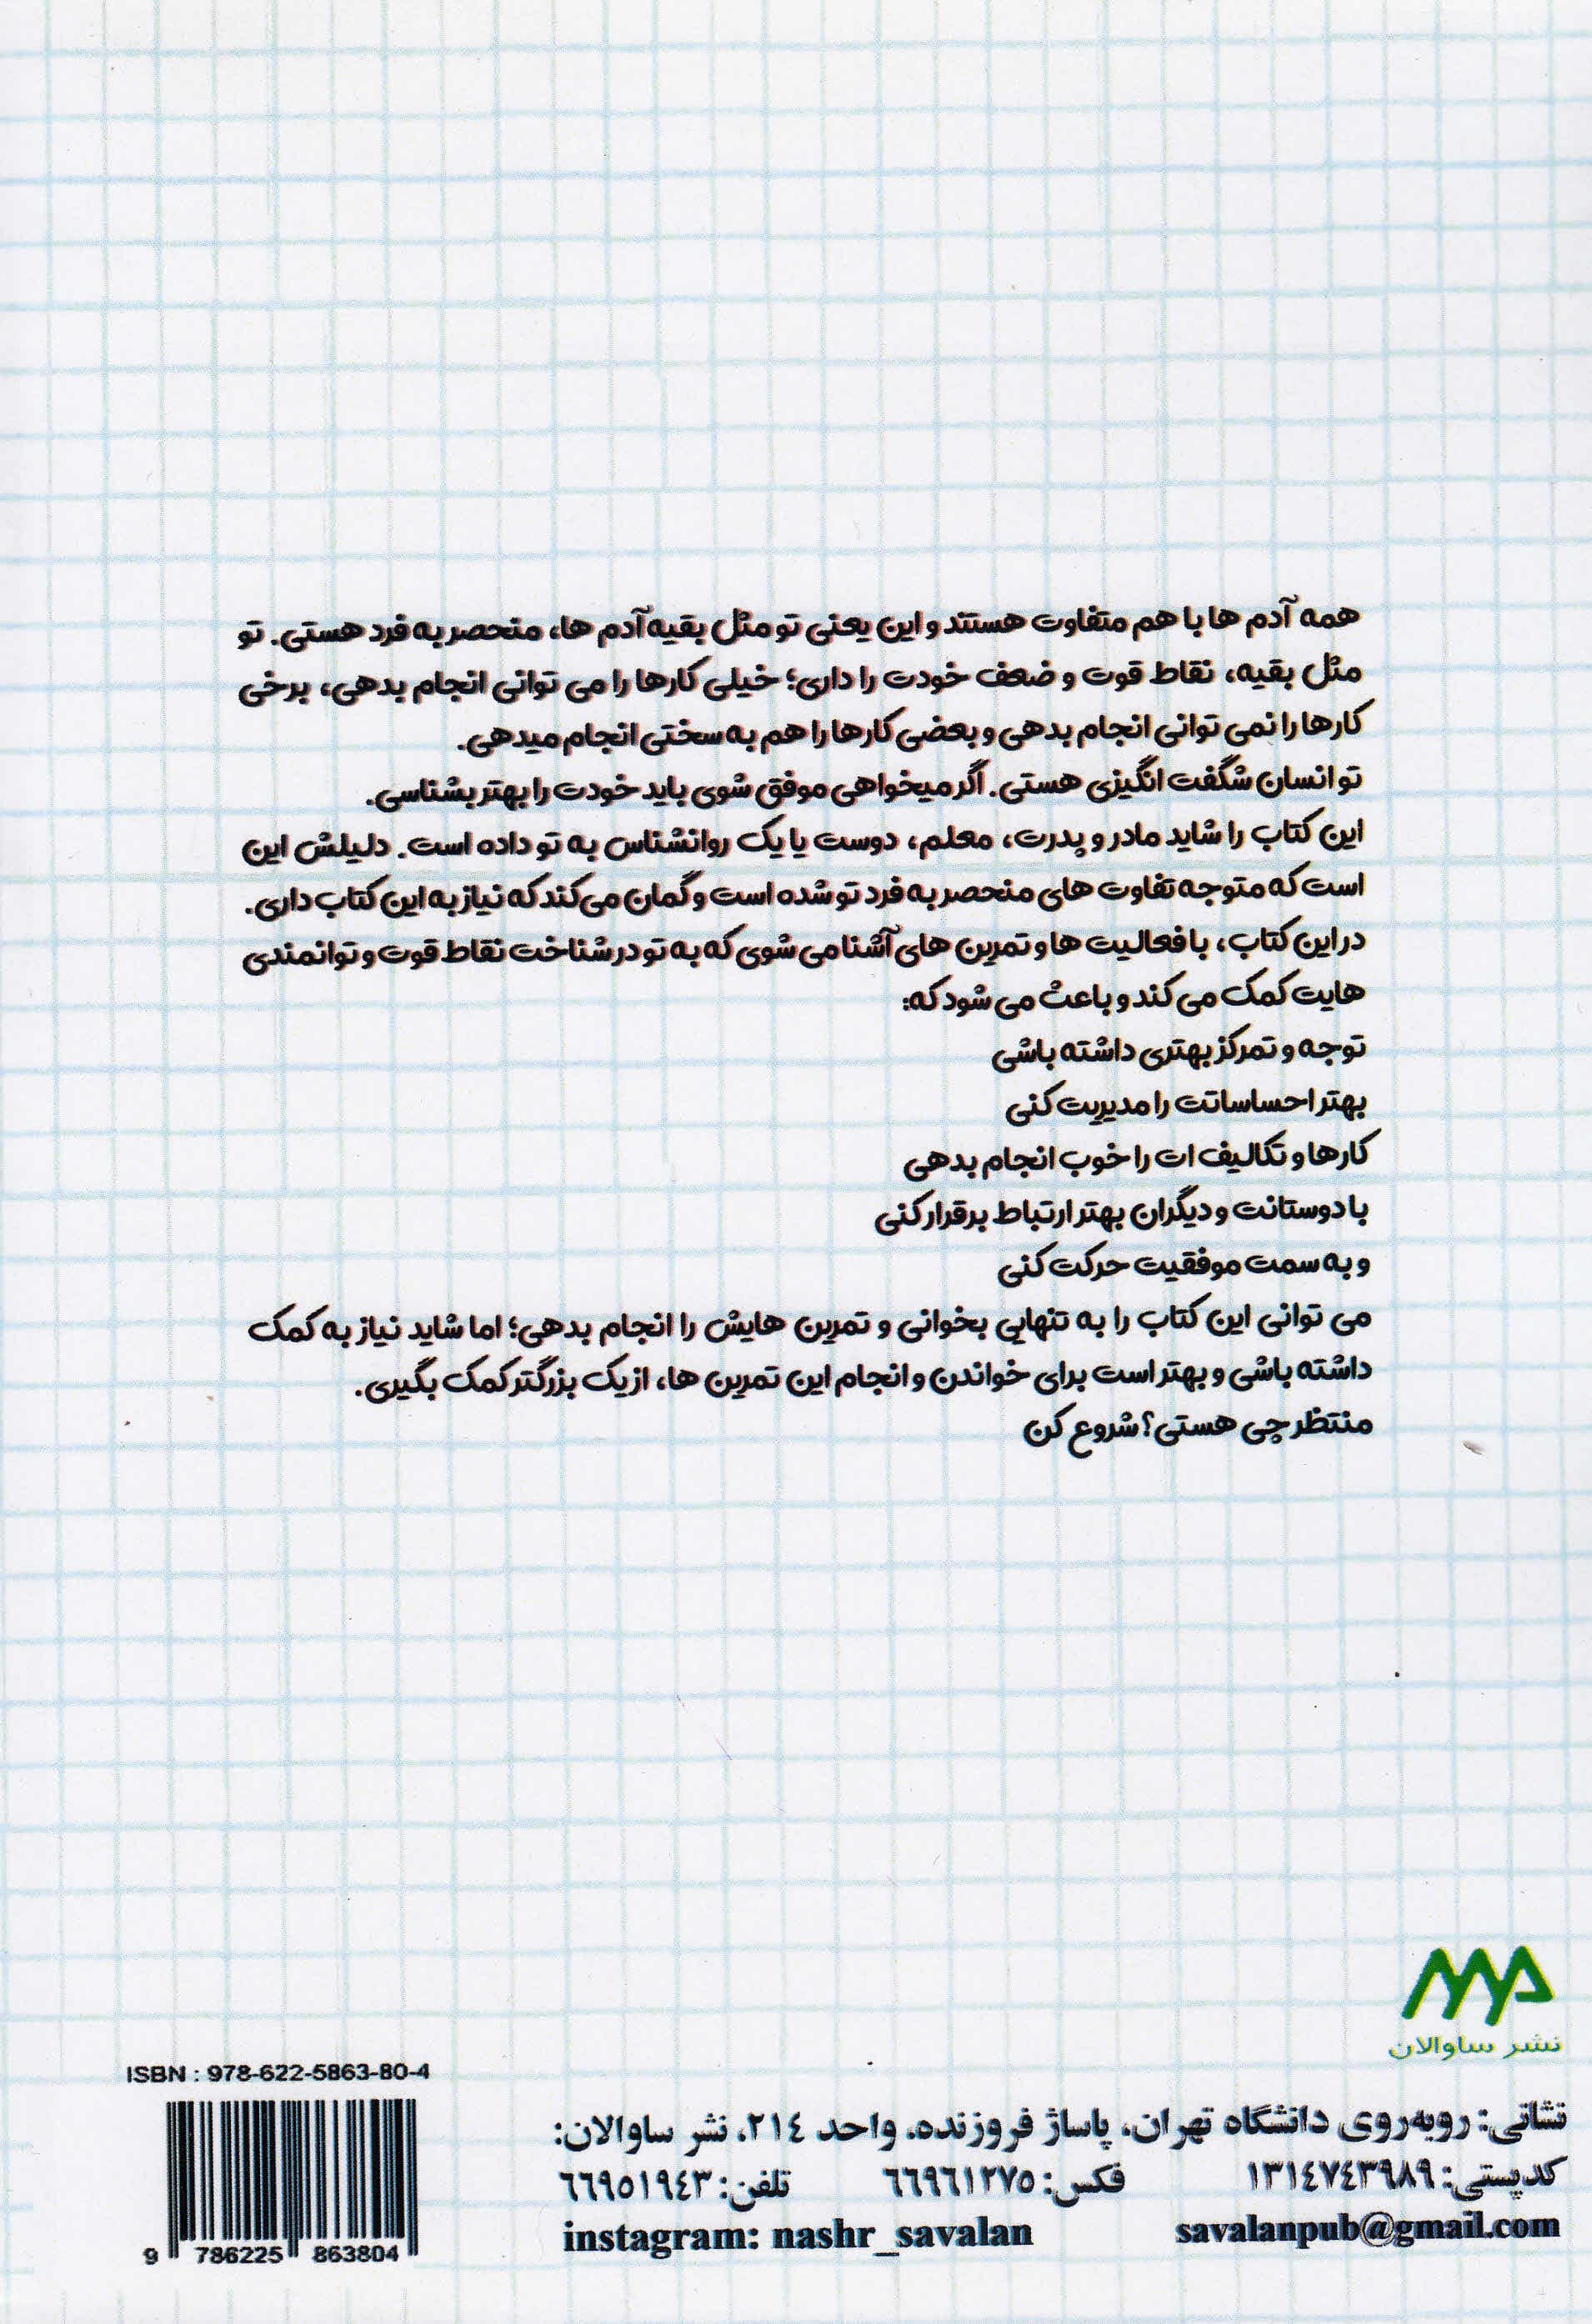 همه آدم ها با هم متفاوت هستند و این یعنی تو مثل بقیه آدم ها، منحصر به فرد هستی. تو
مثل بقیه، نقاط قوت و ضعف خودت را داری؛ خیلی کارها را می توانی انجام بدهی، برخی
کارها را نمی توانی انجام بدهی و بعضی کارها را هم به سختی انجام میدهی.
تو انسان شگفت انگیزی هستی. اگر میخواهی موفق شوی باید خودت را بهتر بشناسی.
این کتاب را شاید مادر و پدرت، معلم، دوست یا یک روانشناس به تو داده است. دلیلش این
است که متوجه تفاوت های منحصر به فرد تو شده است و گمان می کند که نیاز به این کتاب داری.
در این کتاب، با فعالیت ها و تمرین های آشنا می شوی که به تو در شناخت نقاط قوت و توانمندی
هایت کمک می کند و باعث می شود که:
توجه و تمرکز بهتری داشته باشی
بهتر احساساتت را مدیریت کنی
کارها و تکالیف ات را خوب انجام بدهی
با دوستانت و دیگران بهتر ارتباط برقرار کنی
و به سمت موفقیت حرکت کنی
می توانی این کتاب را به تنهایی بخوانی و تمرین هایش را انجام بدهی؛ اما شاید نیاز به کمک
داشته باشی و بهتر است برای خواندن و انجام این تمرین ها، از یک بزرگتر کمک بگیری.
منتظر چی هستی؟ شروع کن
نشر ساوالان
ISBN : 978-622-5863-80-4
9 786225 863804
نشانی: روبه‌روی دانشگاه تهران، پاساژ فروزنده، واحد ٢١٤، نشر ساوالان:
کدپستی: ١٣١٤٧٤٣٩٨٩ فکس: ٦٦٩٦١٢٧٥ تلفن: ٦٦٩٥١٩٤٣
instagram: nashr_savalan savalanpub@gmail.com